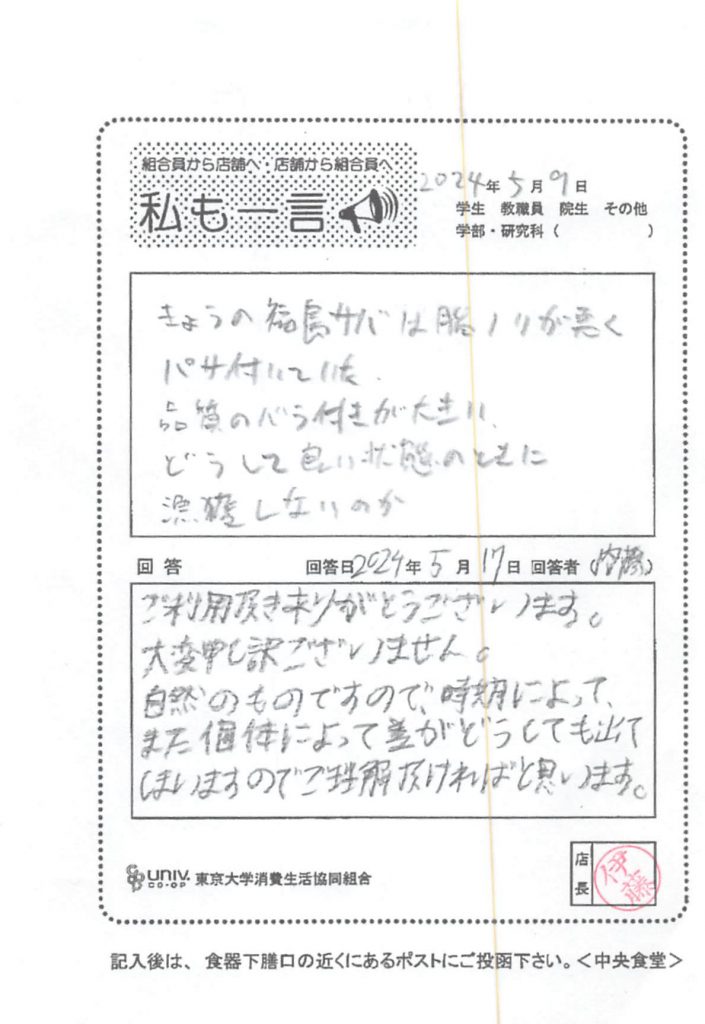 組合員から店舗へ・店舗から組合員へ
私も一言
2024年5月9日
学生 教職員 院生 その他
学部・研究科（ ）
きょうの福島サバは脂ノリが悪く
パサ付いていた、
品質のバラ付きが大きい、
どうして良い状態のときに
漁獲しないのか
回答 回答日2024年5月17日 回答者（内藤）
ご利用頂きありがとうございます。
大変申し訳ございません。
自然のものですので、時期によって、
また個体によって差がどうしても出て
しまいますのでご理解頂ければと思います。
UNIV. CO-OP 東京大学消費生活協同組合
店長 伊藤
記入後は、食器下膳口の近くにあるポストにご投函下さい。＜中央食堂＞